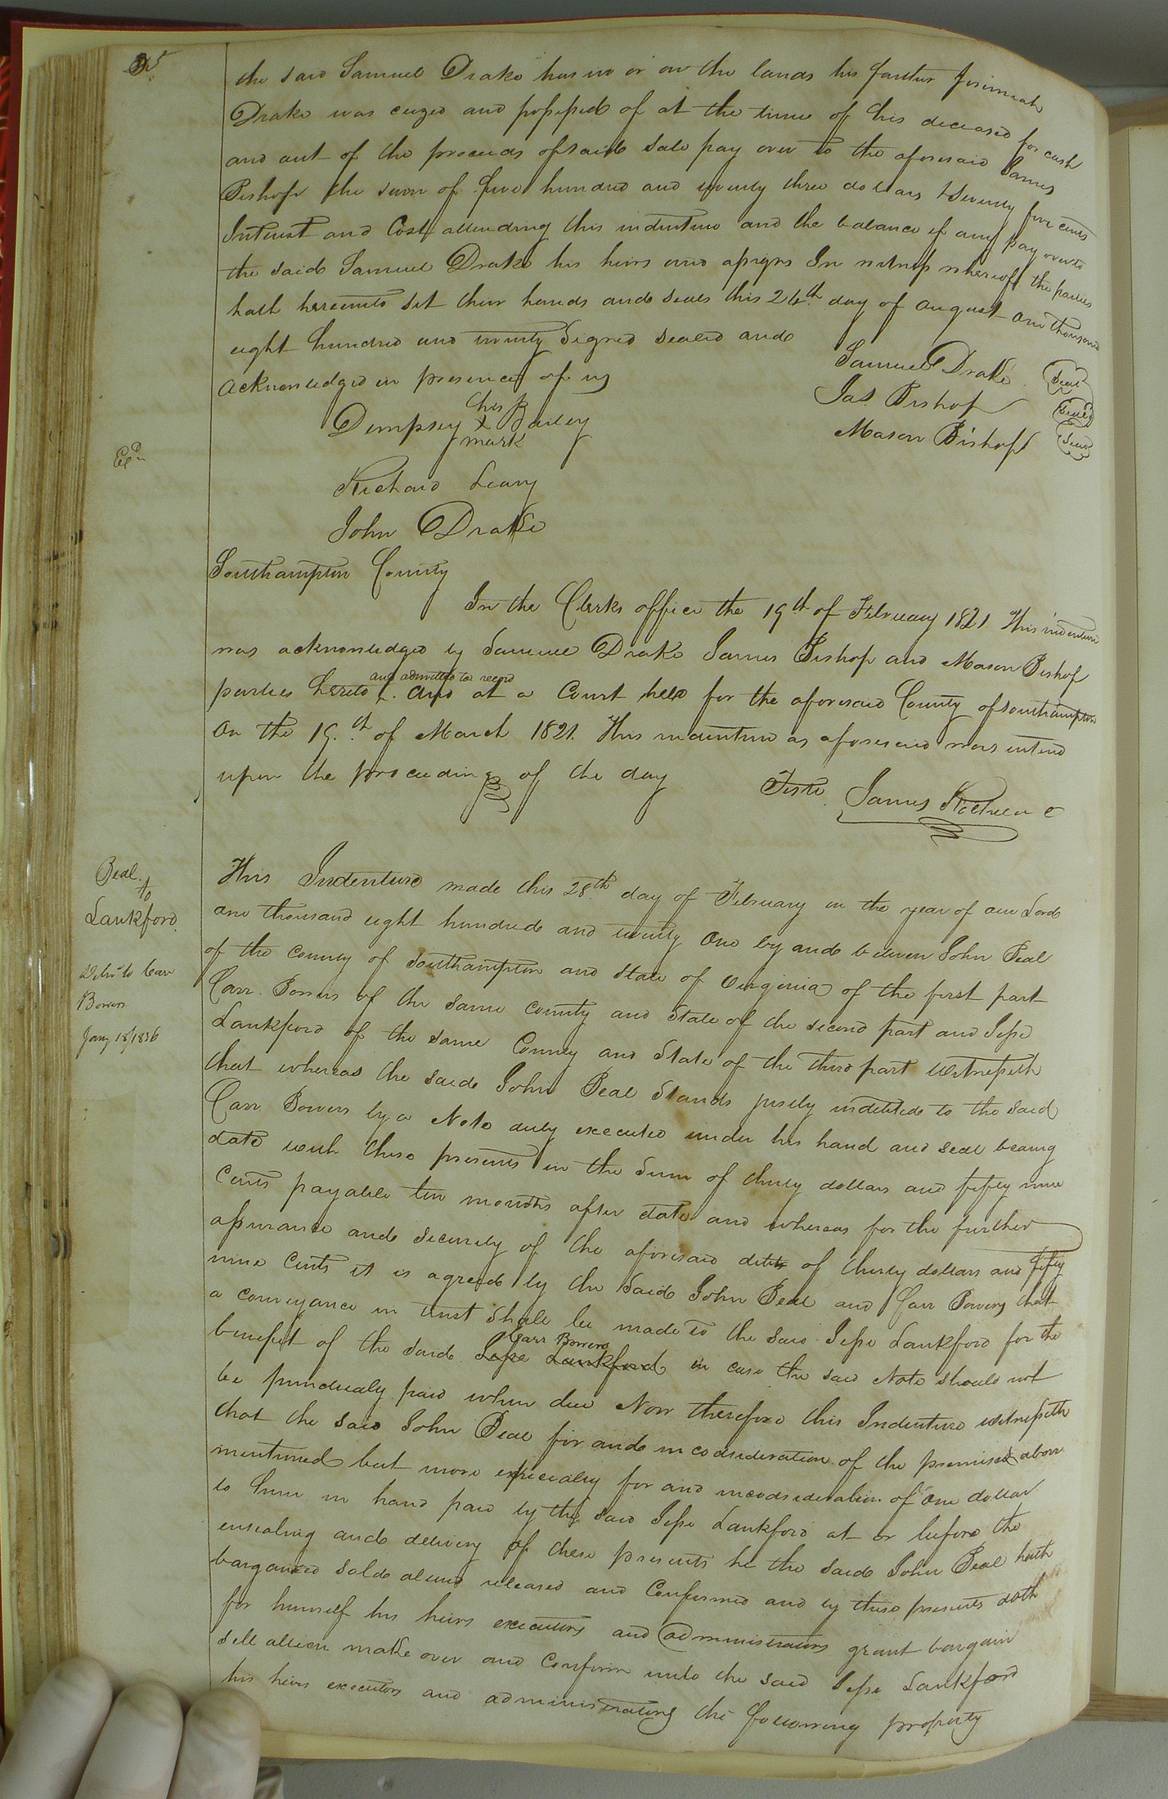 35
the said Samuel Drake has in or on the lands his father Jerimiah
Drake was ceized and possessed of at the time of his deceased for cash
and out of the proceeds of said sale pay over to the aforesaid James
Bishop the sum of five hundred and twenty three dollars & seventy five cents
Interest and Cost attending this indenture and the balance if any pay over to
the said Samuel Drake his heirs and assigns In witness whereoff the parties
hath hereunto set their hands and seals this 26th day of August one thousand
eight hundred and twenty Signed sealed and
acknowledged in presence of us
Samuel Drake Seal
Jas Bishop Seal
Mason Bishop Seal
his
Dempsey X Bailey
mark
Exd
Richard Leavy
John Drake
Southampton County
In the Clerks office the 19th of February 1821 This indenture
was acknowledged by Samuel Drake James Bishop and Mason Bishop
and admitted to record
parties hereto ^. and at a Court held for the aforesaid County of Southampton
on the 19th of March 1821. This indenture as aforesaid was enterd
upon the proceedings of the day
Teste James Rochelle C
Beal
to
Lankford
Deliv'd to Carr
Bowers
Jany 18/1836
This Indenture made this 28th day of February in the year of our Lord
one thousand eight hundred and twenty one by and between John Beal
of the county of Southampton and State of Virginia of the first part
Carr Bowers of the same county and State of the second part and Jesse
Lankford of the same County and State of the third part Witnesseth
that whereas the said John Beal Stands justly indebted to the said
Carr Bowers by a Note duly executed under his hand and seal bearing
date with these presents in the Sum of thirty dollars and fifty nine
Cents payable ten months after date and whereas for the further
assurance and security of the aforesaid debt of thirty dollars and fifty
nine Cents it is agreed by the Said John Beal and Carr Bowers that
a conveyance in trust shall be made to the said Jesse Lankford for the
Carr Bowers
benefit of the said Jesse Lankford in case the said Note should not
be punctualy paid when due Now therefore this Indenture witnesseth
that the said John Beal for and in cosideration of the premises above
mentioned but more especialy for and in cosideration of one dollar
to him in hand paid by the said Jesse Lankford at or before the
ensealing and delivery of these presents he the said John Beal hath
bargained sold aliend released and Confirmed and by these presents doth
for himself his heirs executors and administrators grant bargain
sell alien make over and Confirm unto the said Jesse Lankford
his heirs executors and administrators the following property